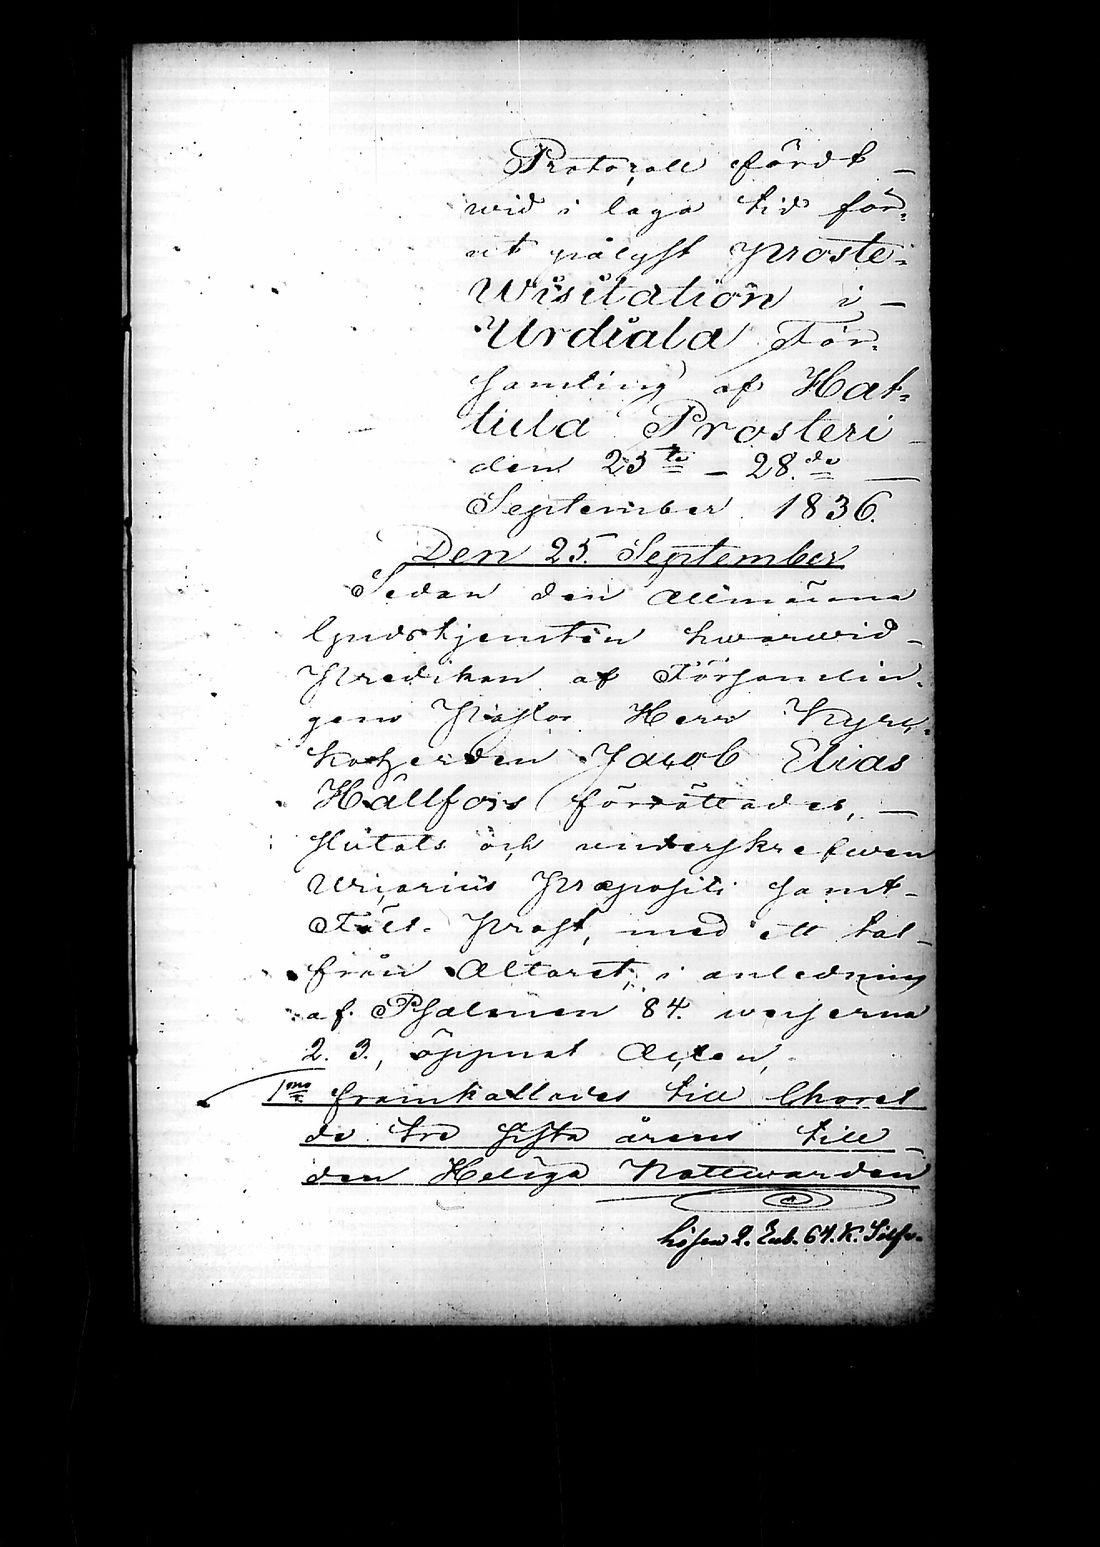 Protocoll fördt
wid i laga tid för-
ut pålyst Proste-
Wisitation i
Urdiala För-
samling af Hat-
tula Prosteri
den 25te – 28de
September 1836.
Den 25. September
Sedan den Allmänna
Gudstjensten hwarwid
Predikan af Församlin-
gens Pastor Herr Kyrk-
koherden Jacob Elias
Hällfors förrättades,
slutats och underskrefwen
Vicarius Præpositi samt
Fält-Prost, med ett tal
från Altaret, i anledning
af Psalmen 84. werserna
2. 3., öppnat Acten,
1mo framkallades till Choret
de tre sista årens till
den Heliga Nattwarden